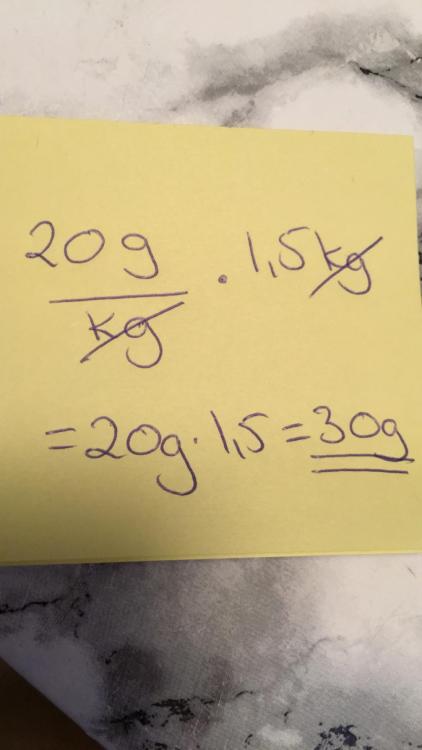 20g
kg · 1,5kg
= 20g · 1,5 = 30g